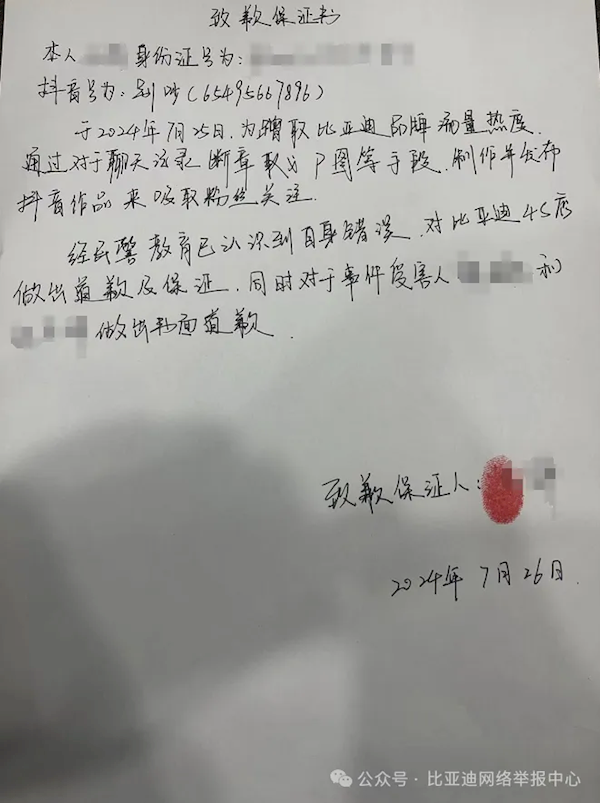 致歉保证书
本人 身份证号为:
抖音号为:别吵(65495667896)
于2024年7月25日,为蹭取比亚迪品牌流量热度,
通过对于聊天记录断章取义P图等手段,制作并发布
抖音作品来吸取粉丝关注.
经民警教育已认识到自身错误,对比亚迪4S店
做出道歉及保证,同时对于事件受害人 和
做出书面道歉.
致歉保证人:
2024年7月26日.
公众号·比亚迪网络举报中心